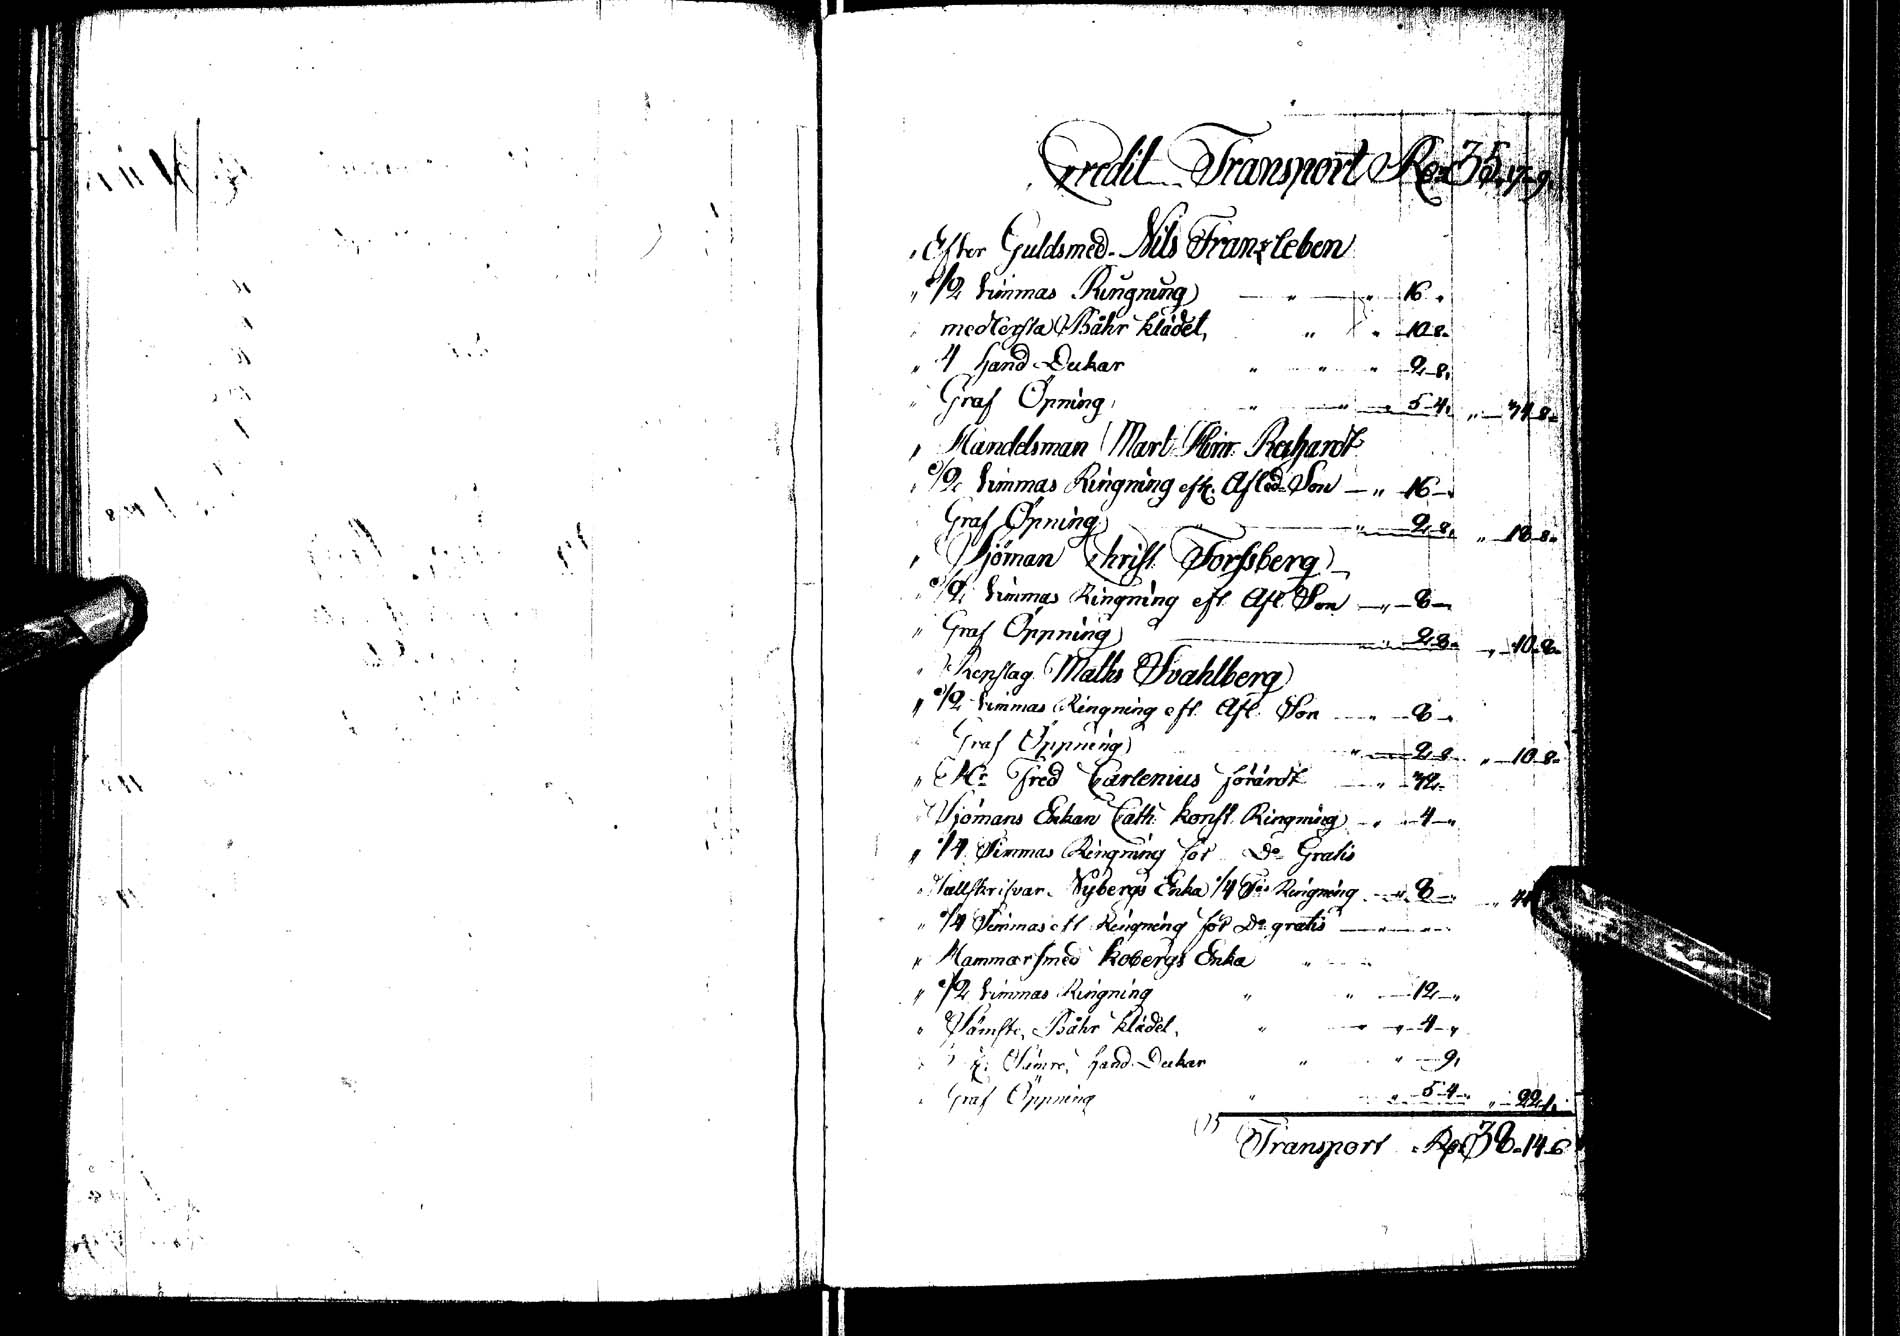 Credit Transport Rd 35,17,9,
Efter Guldsmed. Nils Franzleben
" 1/2 timmas Ringning — " — " 16 "
medlersta Båhr klädet, " " 10 8.
" 4 Hand Dukar " " " 2 8,
" Graf Öpning, " " " 5 4, " 34 8.
" Handelsman Mart Hinr Reghardt
" 1/2 timmas Ringning eft. Afled Son — " 16 "
Graf Öpning " " 2 8, " 18 8.
" Sjöman Christ Forssberg
" 1/2 timmas Ringning eft Afl. Son — " 8 —
" Graf Öppning " 2 8. " 10 8.
" Matts Svahlberg
" 1/2 timmas Ringning eft. Afl. Son — " 8 "
Graf Öppning " 2 8 " 10 8.
" Hr Fred Carlenius förärdt — " 32
Sjömans Enkan Cath Ringning " 4 "
" 1/4 Timmas Ringning för Do Gratis
Nybergs Enka 1/4 Ringning " 8 " " 44
" 1/4 Timmas Ringning för Do gratis
" Hammarsmed Kobergs Enka "
" 1/2 timmas Ringning " " 12 "
" Sämste, Båhr klädet, " " 4 "
Sämre, Hand Dukar " " 9,
Graf Öppning " " 5 4 " " 22 1,
Transport Rd 38. 14 6